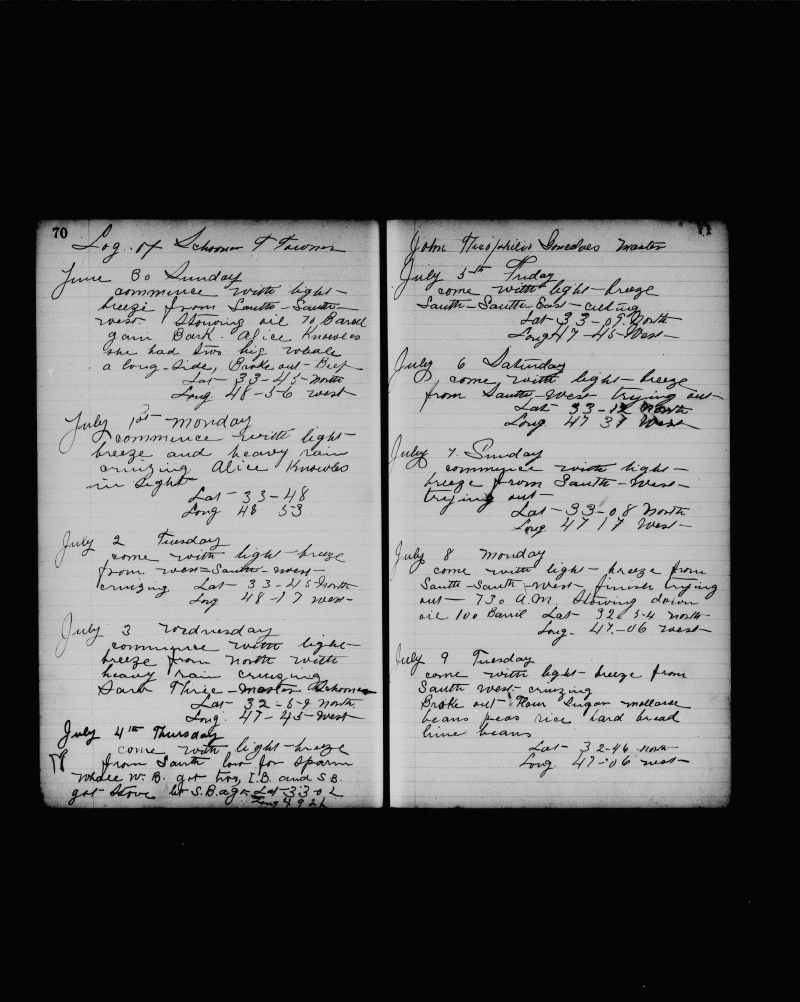 70
Log of Schooner T Towner
June 30 Sunday
commence with light
breeze from South-South
west Stowing oil 70 Barrel
gam Bark Alice Knowles
she had two big whale
a long-side, Broke out-Beef
Lat 33-45-North
Long 48-56 West
July 1st Monday
commence with light
breeze and heavy rain
cruizing Alice Knowles
in sight
Lat 33-48
Long 48 53
July 2 Tuesday
come with light-breeze
from west-South-west-
cruizing Lat 33-45-North
Long 48-17 West-
July 3 Wednesday
commence with light-
breeze from North with
heavy rain cruizing
Saw Three-master Schooner
Lat- 32-59 North
Long. 47-45-West
July 4th Thursday
come with light-breeze
from South low for Sparm
Whale W.B. got two, L.B. and S.B.
got stove S.B. Lat-33-02
Long 49 21
71
John Theophilis Goncalves Master
July 5th Friday
come with light-breeze
South-South-East-cutting
Lat 33-09 North
Long 47-45-West
July 6 Saturday
come with light-breeze
from South-West-trying out-
Lat- 33-12 North
Long 47 37 West
July 7. Sunday
commence with light-
breeze from South-West-
trying out-
Lat-33-08 North
Long 47 17 West-
July 8 Monday
come with light-breeze from
South-South-West-finish trying
out-730 A.M. Stowing down
oil 100 Barril Lat-32-54 North-
Long. 47.-06 West-
July 9 Tuesday
come with light-breeze from
South West-cruizing
Broke out Flour Sugar mollasse
beans peas rice hard bread
lime beans
Lat- 32-46 North-
Long. 47-06 West-